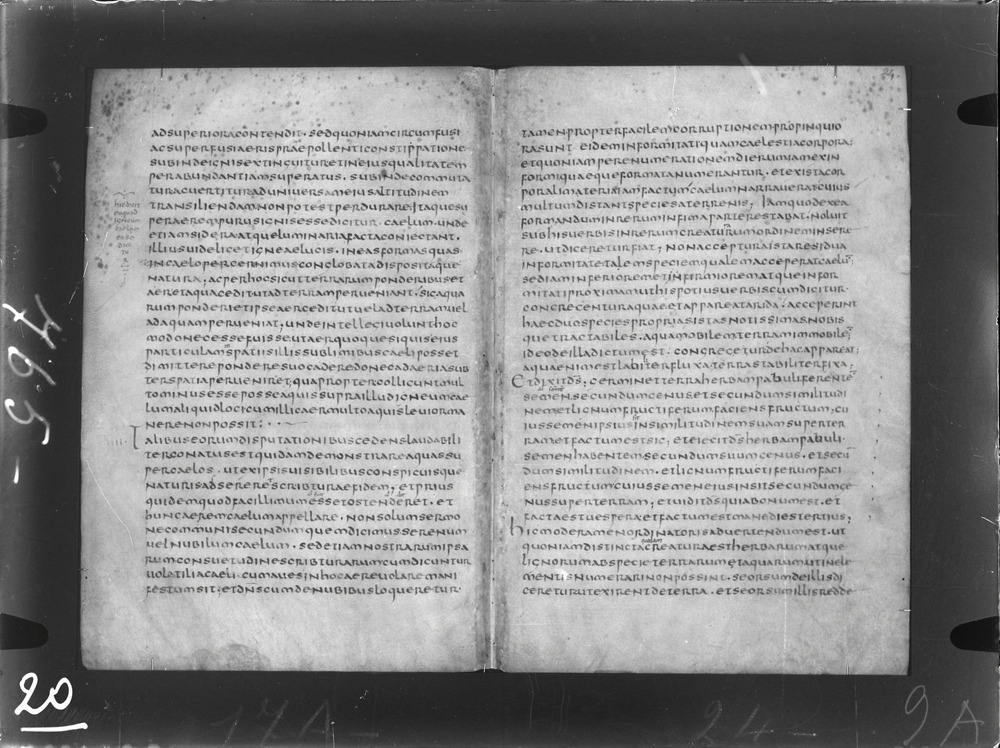 ADSUPERIORACONTENDIT. SEDQUONIAMCIRCUMFUSI
ACSUPERFUSIAERISPRAEPOLLENTICONSTIPATIONE
SUBINDEIGNISEXTINGUITURETINEIUSQUALITATEM
PERABUNDANTIAMSUPERATUS. SUBINDECOMMUTA
TURACVERTITURADUNIVERSAMEIUSALTITUDINEM
TRANSILIENDAMNONPOTESTPERDURARE; ITAQUESU
PERAEREMPURUSIGNISESSEDICITUR. CAELUM. UNDE
ETIAMSIDERAATQUELUMINARIAFACTACONIECTANT.
ILLIUSUIDELICETIGNEAELUCIS. INEASFORMASQUAS
INCAELOPERCERNIMUSCONGLOBATADISPOSITAQUE
NATURA; ACPERHOCSICUTTERRARUMPONDERIBUSET
AERETAQUACEDITUTADTERRAMPERUENIANT. SICAQUA
RUMPONDERIETIPSEAERCEDITUTUELADTERRAMUEL
ADAQUAMPERUENIAT; UNDEINTELLEGIUOLUNTHOC
MODONECESSEFUISSEUTAERQUOQUESIQUISEIUS
PARTICULAMINSPATIISILLISSUBLIMIBUSCAELIPOSSET
DIMITTEREPONDERESUOCADEREDONECADAERIASUB
TERSPATIAPERUENIRET; QUAPROPTERCOLLIGUNTMUL
TOMINUSESSEPOSSEAQUISSUPRAILLUDIGNEUMCAE
LUMALIQUIDLOCICUMILLICAERMULTOAQUISLEUIORMA
NERENONPOSSIT:
TALIBUSEORUMDISPUTATIONIBUSCEDENSLAUDABILI
TERCONATUSESTQUIDAMDEMONSTRAREAQUASSU
PERCAELOS. UTEXIPSISUISIBILIBUSCONSPICUISQUE
NATURISADSERERETSCRIBTURAEFIDEM; ETPRIUS
QUIDEMQUODFACILLIMUMESSETOSTENDERET. ET
HUNCAEREMCAELUMAPPELLARE. NONSOLUMSERMO
NECOMMUNISECUNDUMQUEMDICIMUSSERENUM
UELNUBILUMCAELUM. SEDETIAMNOSTRARUMIPSA
RUMCONSUETUDINESCRIBTURARUMCUMDICUNTUR
UOLATILIACAELI. CUMAUESINHOCAEREUOLAREMANI
FESTUMSIT; ETDNSCUMDENUBIBUSLOQUERETUR.
24
TAMENPROPTERFACILEMCORRUPTIONEMPROPINQUIO
RASUNT EIDEMINFORMITATIQUAMCAELESTIACORPORA;
ETQUONIAMPERENUMERATIONEMDIERUMIAMEXIN
FORMIQUAEQUEFORMATANUMERANTUR. ETEXISTACOR
PORALIMATERIAIAMFACTUMCAELUMNARRAUERATCUIUS
MULTUMDISTANTSPECIESATERRENIS; IAMQUODEXEA
FORMANDUMINRERUMINFIMAPARTERESTABAT. NOLUIT
SUBHISUERBISINRERUMCREATURUMORDINEMINSERE
RE. UTDICERETURFIAT; NONACCEPTURAISTARESIDUA
INFORMITATETALEMSPECIEMQUALEMACCEPERATCAELUM;
SEDIAMINFERIOREMETINFIRMIOREMATQUEINFOR
MITATIPROXIMAMUTHISPOTIUSUERBISCUMDICITUR.
CONGREGENTURAQUAEETAPPAREATARIDA; ACCEPERINT
HAECDUOSPECIESPROPRIASISTASNOTISSIMASNOBIS
QUETRACTABILES. AQUAMOBILEMTERRAMIMMOBILEM;
IDEODEILLADICTUMEST. CONGREGETURDEHACAPPAREAT;
AQUAENIMESTLABITERFLUXATERRASTABILITERFIXA;
ETDIXITDS; GERMINETTERRAHERBAMPABULIFERENTEM
SEMENSECUNDUMGENUSETSECUNDUMSIMILITUDI
NEMETLIGNUMFRUCTIFERUMFACIENSFRUCTUM; CU
IUSSEMENIPSIUSINSIMILITUDINEMSUAMSUPERTER
RAMETFACTUMESTSIC; ETEIECITDSHERBAMPABULI.
SEMENHABENTEMSECUNDUMSUUMGENUS. ETSECU
DUMSIMILITUDINEM. ETLIGNUMFRUCTIFERUMFACI
ENSFRUCTUMCUIUSSEMENEIUSINSITSECUNDUMGE
NUSSUPERTERRAM; ETUIDITDSQUIABONUMEST. ET
FACTAESTUESPERAETFACTUMESTMANEDIESTERTIUS;
HICMODERAMENORDINATORISADUERTENDUMEST. UT
QUONIAMDISTINCTACREATURAESTHERBARUMATQUE
LIGNORUMABSPECIETERRARUMETAQUARUMUTINELE
MENTISNUMERARINONPOSSINT. SEORSUMDEILLISDI
CERETURUTEXIRENTDETERRA. ETSEORSUMILLISREDDE
20
17A-
24-
9A